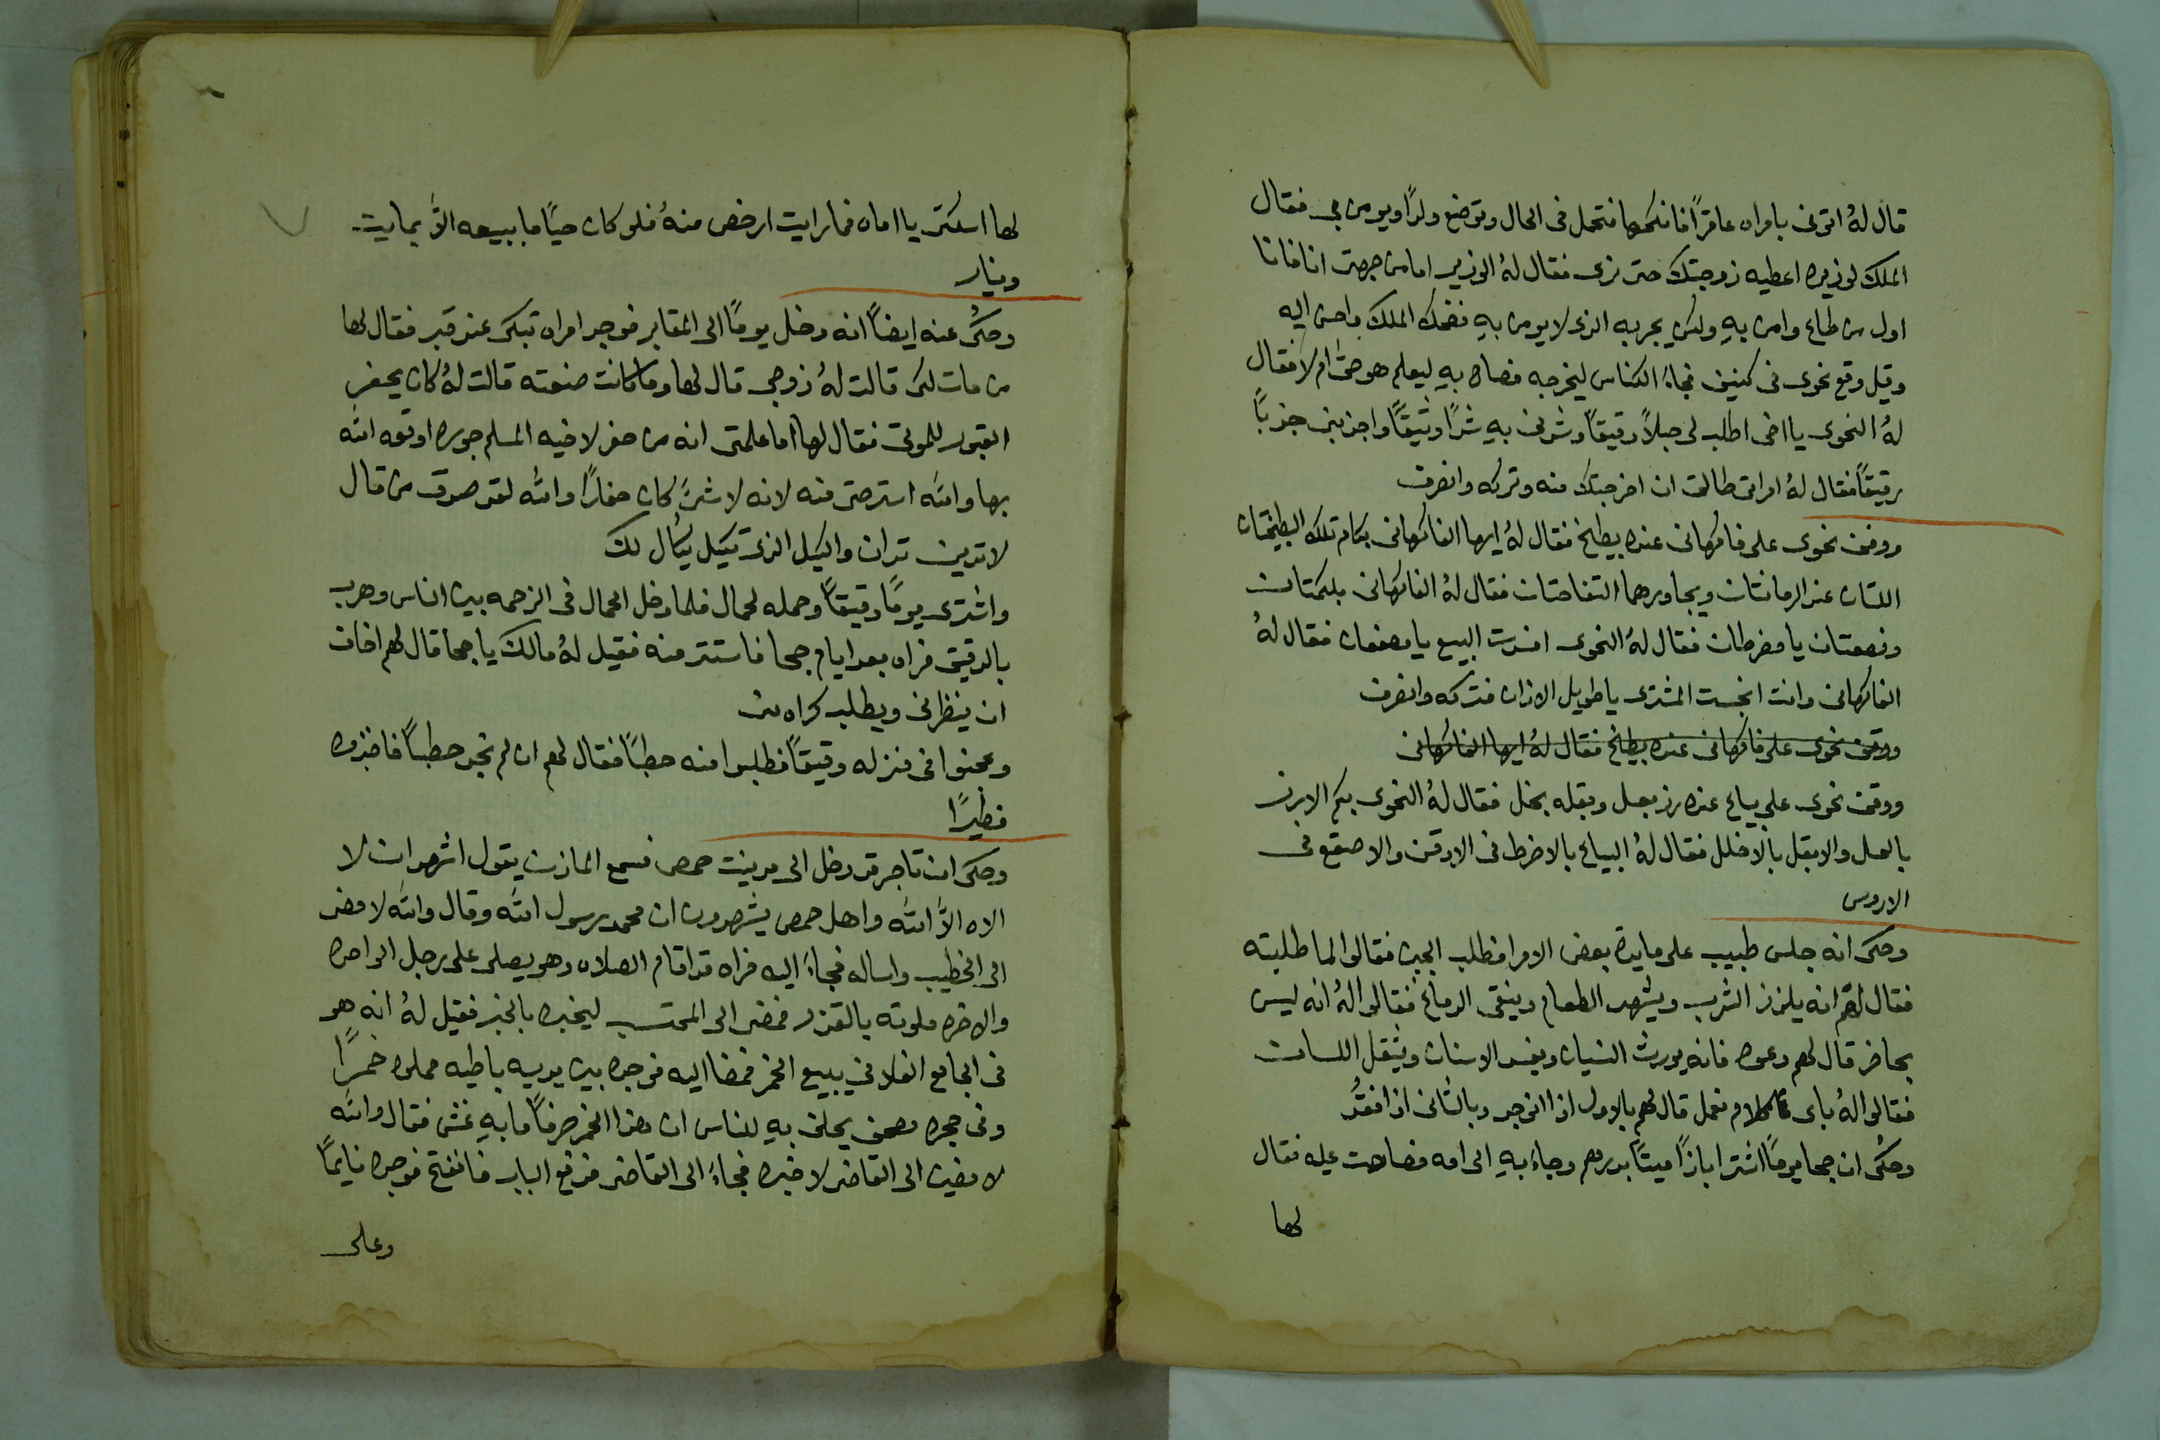 قال لهُ اتونى بامراه عاقرًا فانكحها فتحمل فى الحال وتوضع ولدًا ويومن بى فقال
الملك لوزيره اعطيه زوجتك حتى نرى فقال لهُ الوزير اما من جهت انا فانا
اول من طاع وامن بهِ ولكن يجربه الذى لا يومن بهِ فضحك الملك واحسن اليه
وقيل وقع نحوى فى كنيف فجاءَ الكناس ليخرجه فصاح بهِ ليعلم هو حىٌ ام لا فقال
لهُ النحوى يا اخى اطلب لى حبلاً دقيقاً وشدنى بهِ شدًا وثيقاً واجذبنى جذبًا
رقيقاً فقال لهُ امراتى طالق ان اخرجتك منه وتركه وانصرف
ووقف نحوى على فاكهانى عنده بطيخ فقال لهُ ايها الفاكهانى بكام تلك البطيختان
اللتان عند الرمانتان ويجاورهما التفاحتان فقال لهُ الفاكهانى بلكمتان
وصفعتان يا مضرطان فقال لهُ النحوى افسدت البيع يا مصفعان فقال لهُ
الفاكهانى وانت انجست المشترى يا طويل الاذان فتركه وانصرف
ووقف نحوى على فاكهانى عنده بطيخ فقال لهُ ايها الفاكهانى
ووقف نحوى على بياع عنده رز بعسل وبقله بخل فقال لهُ النحوى بكم الارز
بالعسل والابقل بالاخلل فقال لهُ البياع بالاضرط فى الادقن والاصقع فى
الاروس
وحكى انه جلس طبيب على مايدة بعض الامرا فطلب الجبن فقالوا لما طلبته
فقال لهم انه يلذذ الشرب ويشهى الطعام وينقى الدماغ فقالوا لهُ انه ليس
بحاضر قال لهم دعوه فانه يورث النسيان ويفسد الاسنان ويثقل اللسان
فقالوا لهُ باى كلام نعمل قال لهم بالاول اذا انوجد وبالثانى اذا فقدُ
وحكُى ان جحا يومًا اشترا بازًا ميتاً بدرهم وجاءَ بهِ الى امه فصاحت عليه فقال
لها
لها اسكتى يا اماه فما رايت ارخص منهُ فلو كان حيًا ما ببيعه الاَّ بمايت
دينار
وحكُى عنه ايضاً انه دخل يومًا الى المقابر فوجد امراه تبكى عند قبر فقال لها
من مات لكى قالت لهُ زوجى قال لها وما كانت صنعته قالت لهُ كان يحفر
القبور للموتى فقال لها اما علمتى انه من حفر لاخيه المسلم جوره اوقعه الله
بها والله استرحتى منه لانه لا شئً كان حفارًا والله لقد صدق من قال
لا تدين تدان والكيل الذى تكيل يُكال لك
واشترى يومًا دقيقاً وحمله لحمال فلما دخل الحمال فى الزحمه بين الناس وهرب
بالدقيق فراه بعد ايام جحا فاستتر منه فقيل لهُ مالك يا جحا قال لهم اخاف
ان ينظرنى ويطلب كراه منى
وعجنوا فى منزله دقيقاً فطلبوا منه حطبًا فقال لهم ان لم نجد حطباً فاخبزوه
فطيرًا
وحكى ان تاجر قد دخل الى مدينت حمص فسمع الماذن يقول اشهد ان لا
الاه الاَّ الله واهل حمص يشهدون ان محمد رسول الله وقال والله لامضى
الى الخطيب واساله فجاءَ اليه فراه قد اقام الصلاه وهو يصلى على رجل الواحده
والاخره ملوته بالقذر فمضى الى المحتسب ليخبره بالخبر فقيل لهُ انه هو
فى الجامع الفلانى يبيع الخمر فمضا اليه فوجده بين يديه باطيه مملوه خمرًا
وفى حجره مصحف يحلف بهِ للناس ان هذا الخمر صرفاً ما بهِ غش فقال والله
لامضين الى القاضى لاخبره فجاءَ الى القاضى فدفع الباب فانفتح فوجده نايمًا
وعلى